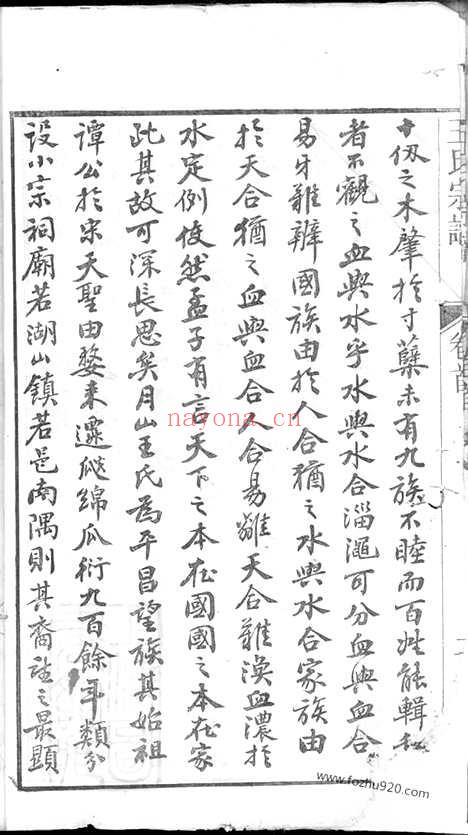 十仞之木肇於寸蘖未有九族不睦而百姓能輯和
者不觀之血與水乎水與水合淄澠可分血與血合
易牙難辨國族由於人合猶之水與水合家族由
於天合猶之血與血合人合易離天合難渙血濃於
水定例倰然孟子有言天下之本在國國之本在家
此其故可深長思矣月山王氏為平昌望族其始祖
譚公於宋天聖由婺來遷瓞綿瓜衍九百餘年類分
設小宗祠廟若湖山鎮若邑南隅則其裔誌之最顯
王氏宗譜
卷首
nayona.cn
www.fozhu920.com